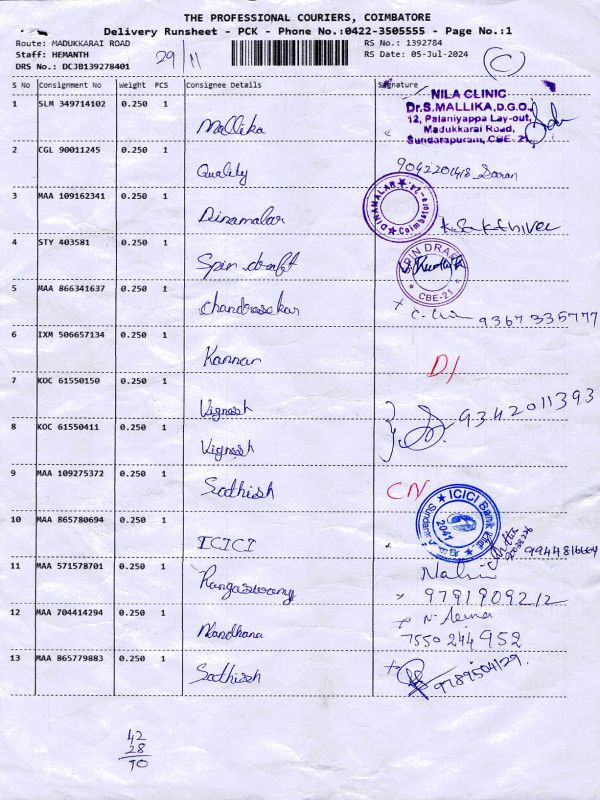 THE PROFESSIONAL COURIERS, COIMBATORE
Delivery Runsheet - PCK - Phone No.:0422-3505555 - Page No.:1
Route: MADUKKARAI ROAD
Staff: HEMANTH
DRS No.: DCJB139278401
29/11
RS No.: 1392784
RS Date: 05-Jul-2024
C
S No Consignment No Weight PCS Consignee Details Signature
1 SLM 349714102 0.250 1 Mallika
NILA CLINIC
Dr.S.MALLIKA,D.G.O.,
12, Palaniyappa Lay-out,
Madukkarai Road,
Sundarapuram, CBE-21.
2 CGL 90011245 0.250 1 Quality 9042201418 Saran
3 MAA 109162341 0.250 1 Dinamalar
DINAMALAR
Coimbatore
K. Sakthivel
4 STY 403581 0.250 1 Spin draft
SPIN DRAFT
CBE-21
5 MAA 866341637 0.250 1 Chandrasekar 9367335777
6 IXM 506657134 0.250 1 Kannan D/
7 KOC 61550150 0.250 1 Vignesh 9342011393
8 KOC 61550411 0.250 1 Vignesh
9 MAA 109275372 0.250 1 Sathish CN
10 MAA 865780694 0.250 1 ICICI
ICICI Bank Ltd
2041
9944816664
11 MAA 571578701 0.250 1 Rangaswamy
9791909212
12 MAA 704414294 0.250 1 Nandhana
7550 244 952
13 MAA 865779883 0.250 1 Sathish 9789504129
42
28
70